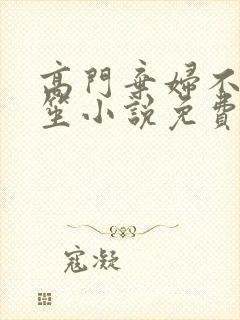 高門棄婦不
笙小說免費
寇凝